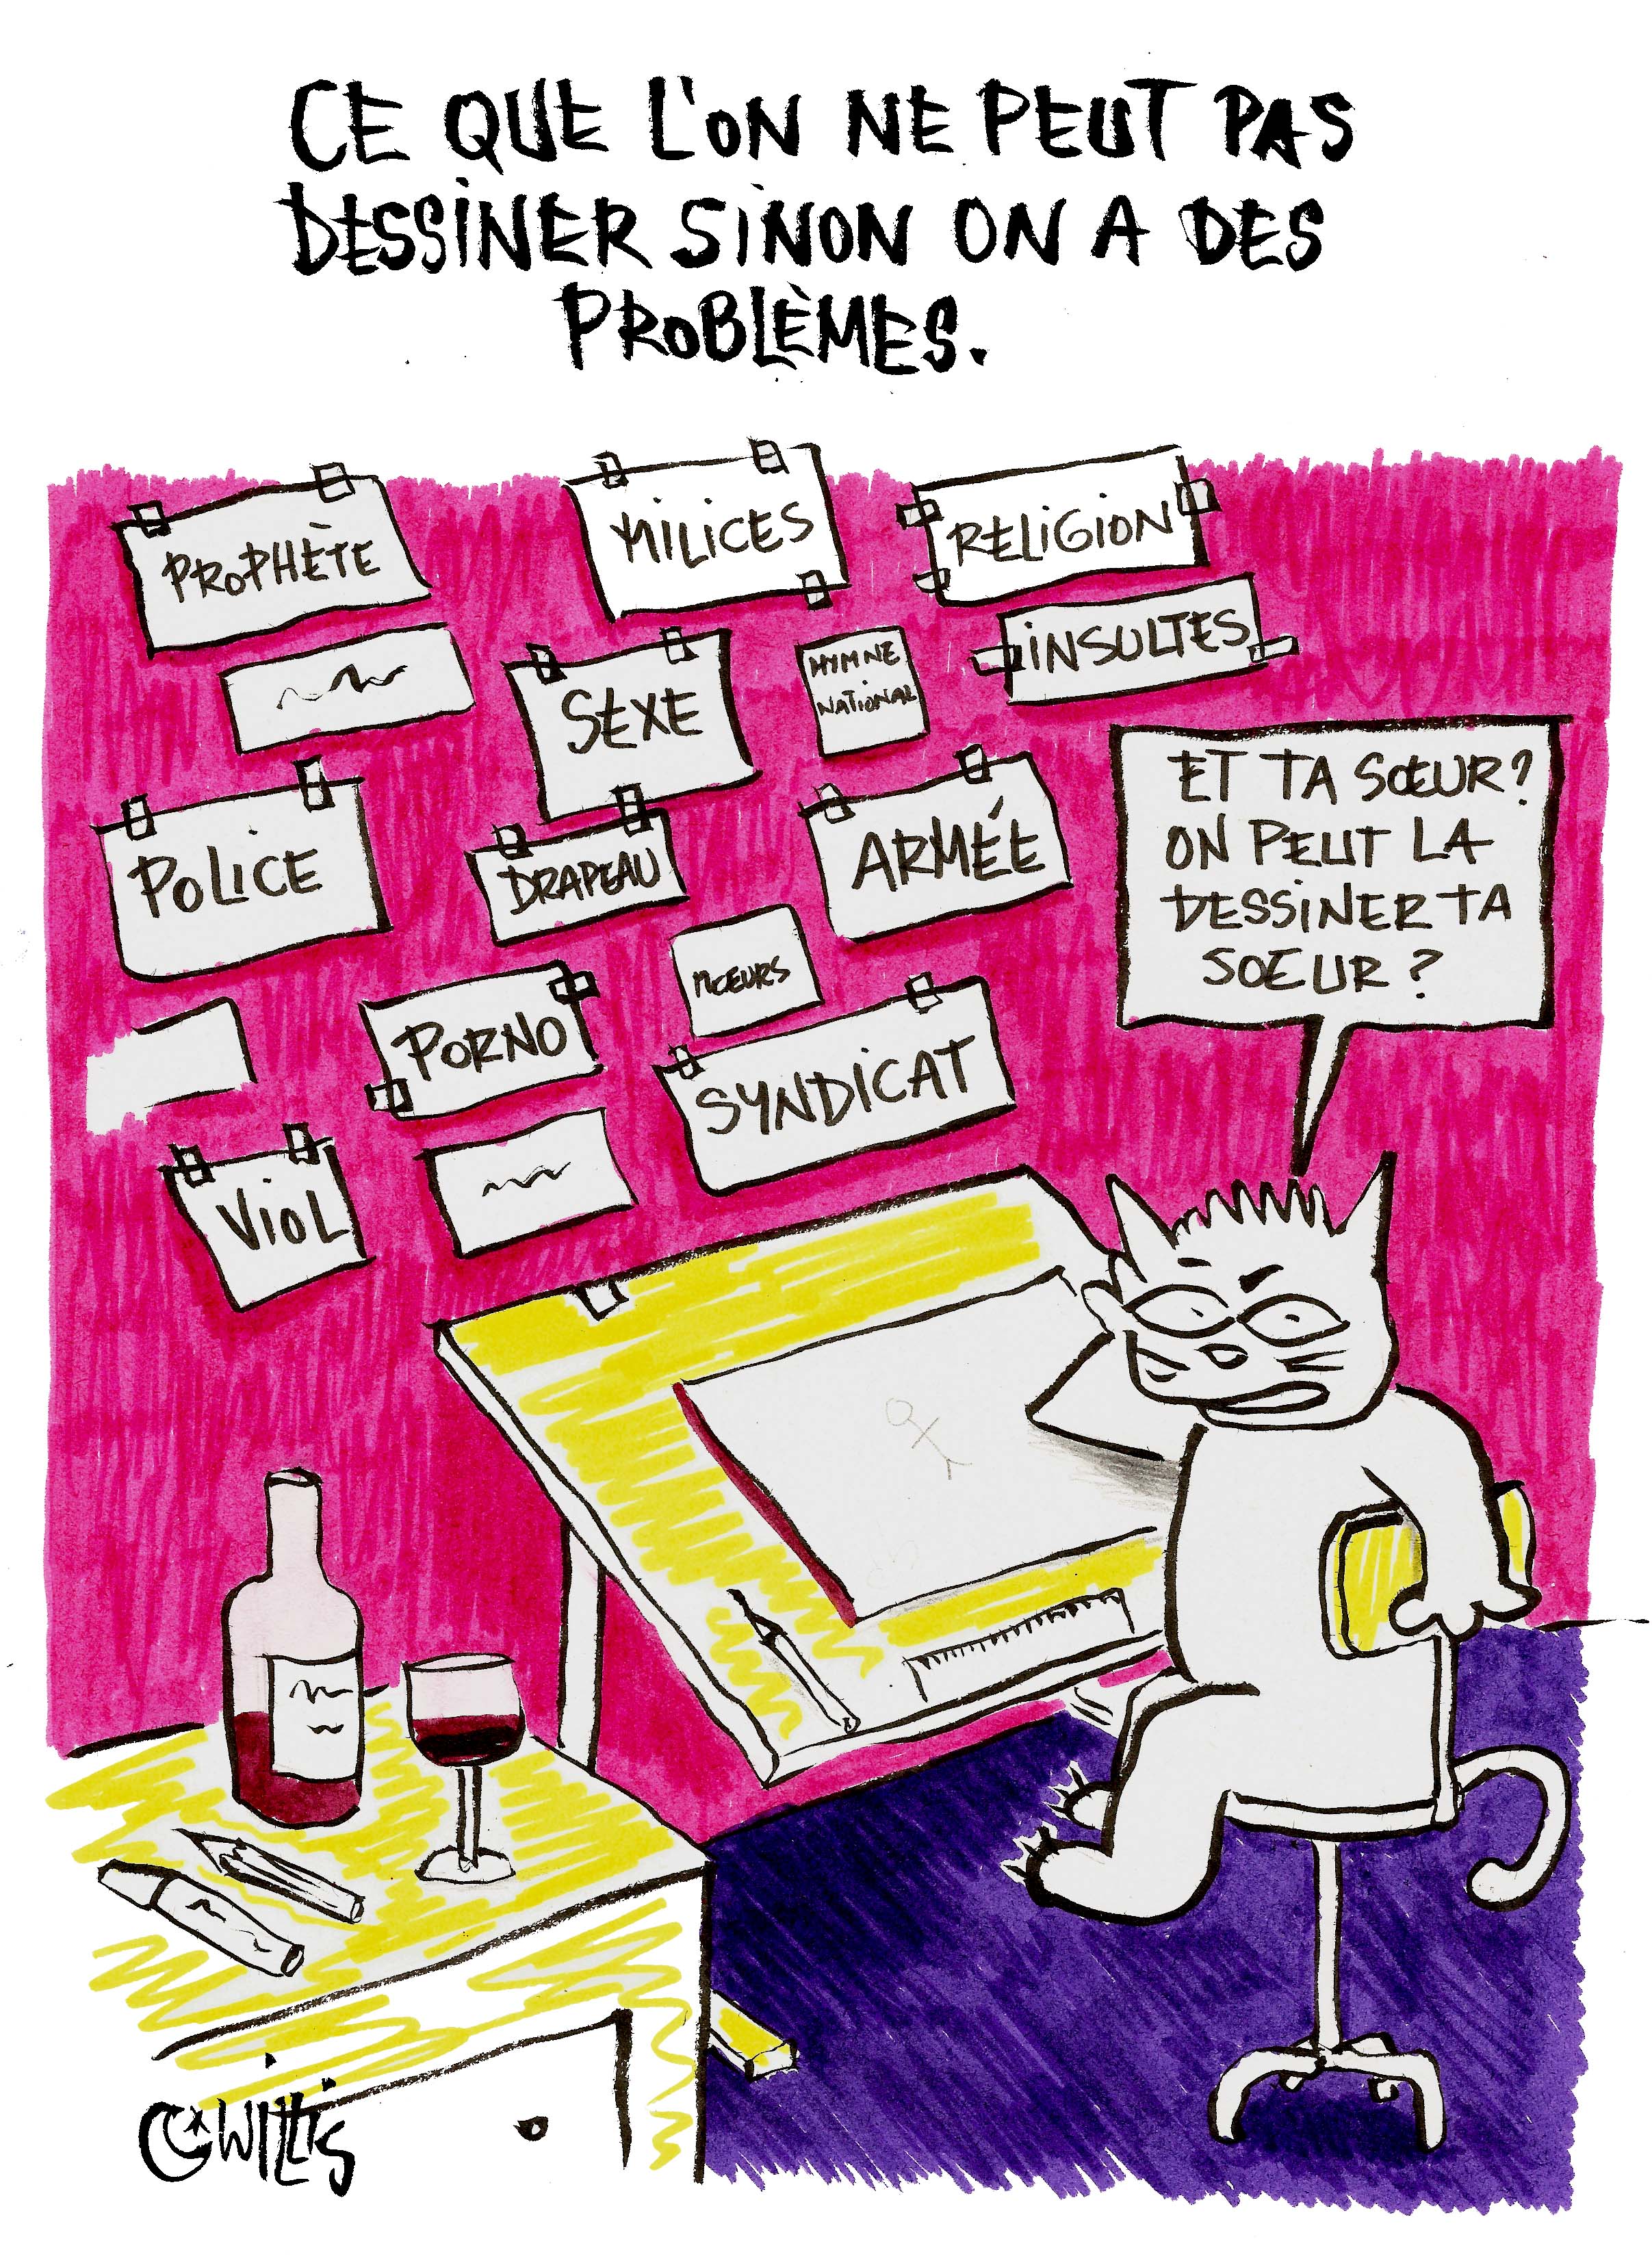 CE QUE L'ON NE PEUT PAS
DESSINER SINON ON A DES
PROBLÈMES.
PROPHÈTE
MILICES
RELIGION
SEXE
HYMNE
NATIONAL
INSULTES
POLICE
DRAPEAU
ARMÉE
ET TA SŒUR?
ON PEUT LA
DESSINER TA
SŒUR?
PORNO
MŒURS
SYNDICAT
VIOL
WILLIS